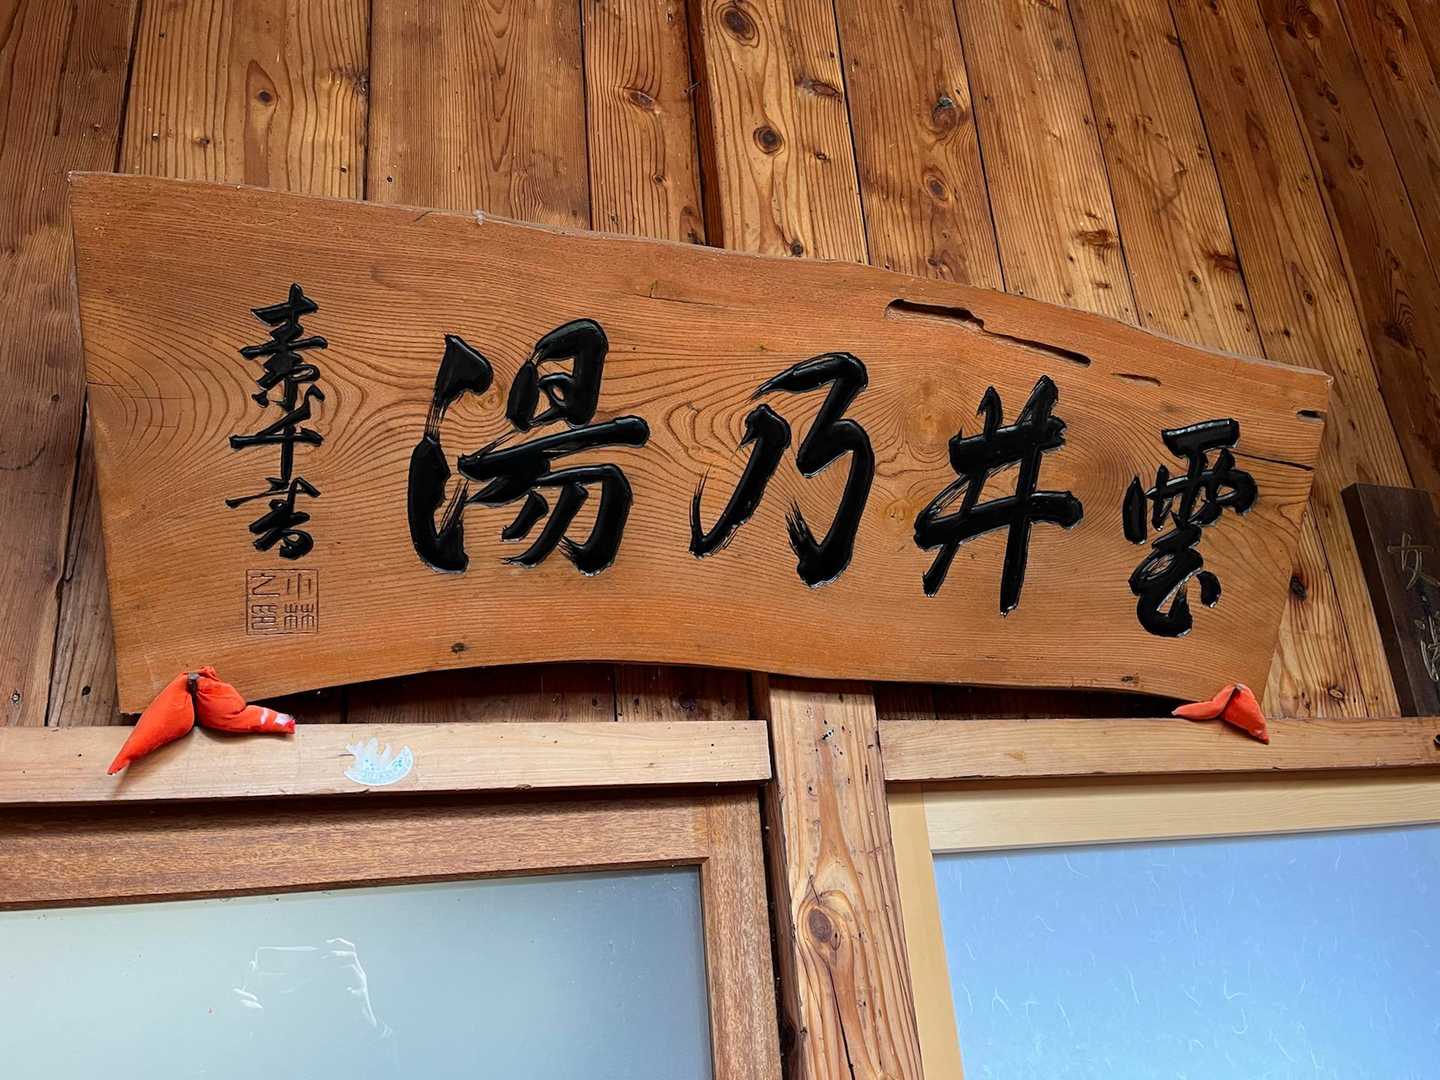 雲井乃湯
素平書
小林之印
女